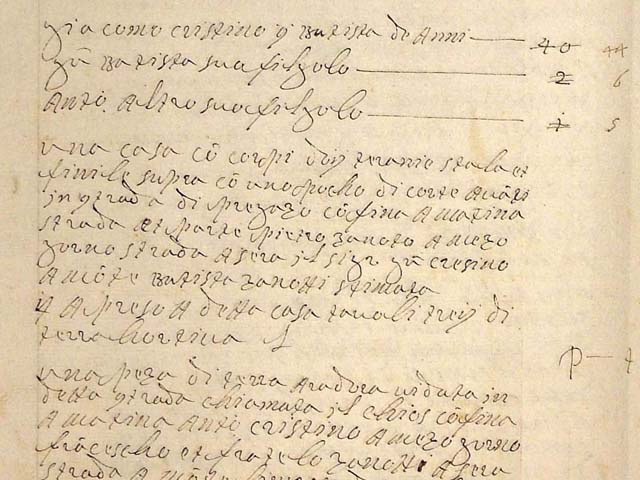 Giacomo Cristino q Batista de Anni 40 44
Zũ Batista suo figlolo 2 6
Antõ. Altro suo figlolo 1 5
una casa cõ corpi doÿ teranio stala et
finile supra cõ uno pocho di corte Auãti
in gtrada di Prezazo cõfina A matina
strada et parte pietro zanoto A mezo
zorno strada A sera il sigr zũ Cresino
A mõte Batista zanotti stimata
A preso A detta casa tauoli treÿ di
terra hortiua
p 4
una peza di terra Aradora uidata in
detta gtrada chiamata il chios cõfina
A matina Antõ cristino A mezo zorno
frãcescho et fratelo zanotti A sera
strada A mõte